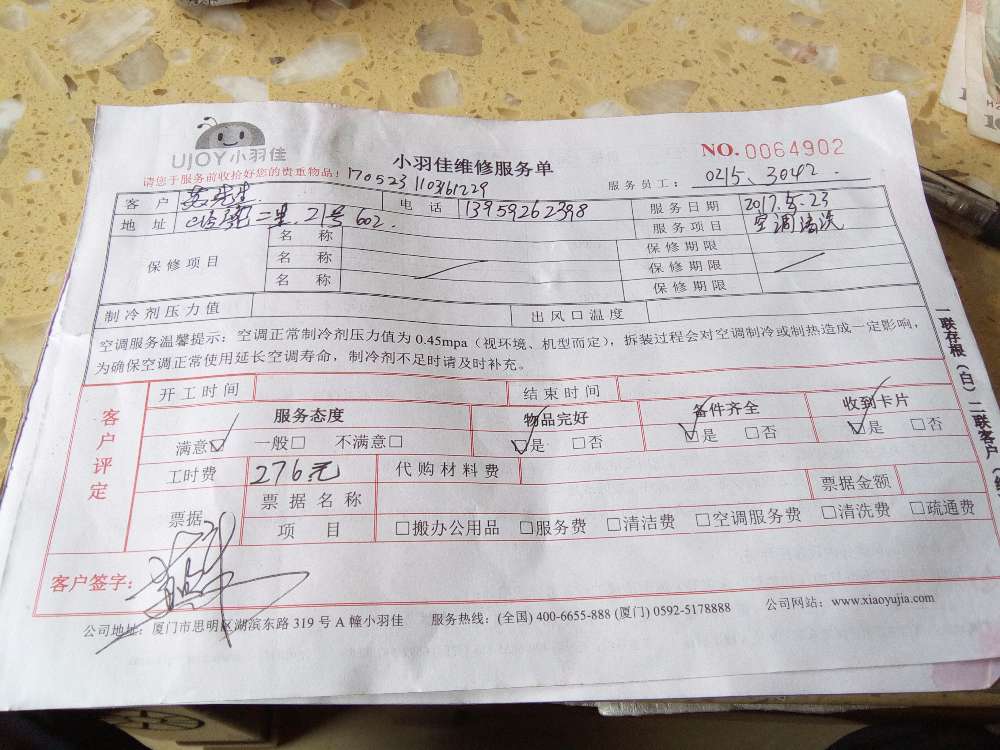 UJOY小羽佳
小羽佳维修服务单
NO. 0064902
请您于服务前收拾好您的贵重物品！170523110361229
服务员工： 0215、3042
客户 先生 电话 13959262398 服务日期 2017.5.23
地址 二里 21号 602. 服务项目 空调清洗
保修项目 名称 保修期限
名称 保修期限
名称 保修期限
制冷剂压力值 出风口温度
空调服务温馨提示：空调正常制冷剂压力值为 0.45mpa（视环境、机型而定），拆装过程会对空调制冷或制热造成一定影响，
为确保空调正常使用延长空调寿命，制冷剂不足时请及时补充。
客户评定
开工时间 结束时间
服务态度 物品完好 备件齐全 收到卡片
满意☑ 一般□ 不满意□ ☑是 □否 ☑是 □否 ☑是 □否
工时费 276元 代购材料费
票据 票据名称 票据金额
项目 □搬办公用品 □服务费 □清洁费 □空调服务费 □清洗费 □疏通费
客户签字：
公司地址：厦门市思明区湖滨东路 319 号 A 幢小羽佳 服务热线：(全国) 400-6655-888 (厦门) 0592-5178888 公司网站：www.xiaoyujia.com
一联存根（白）二联客户（